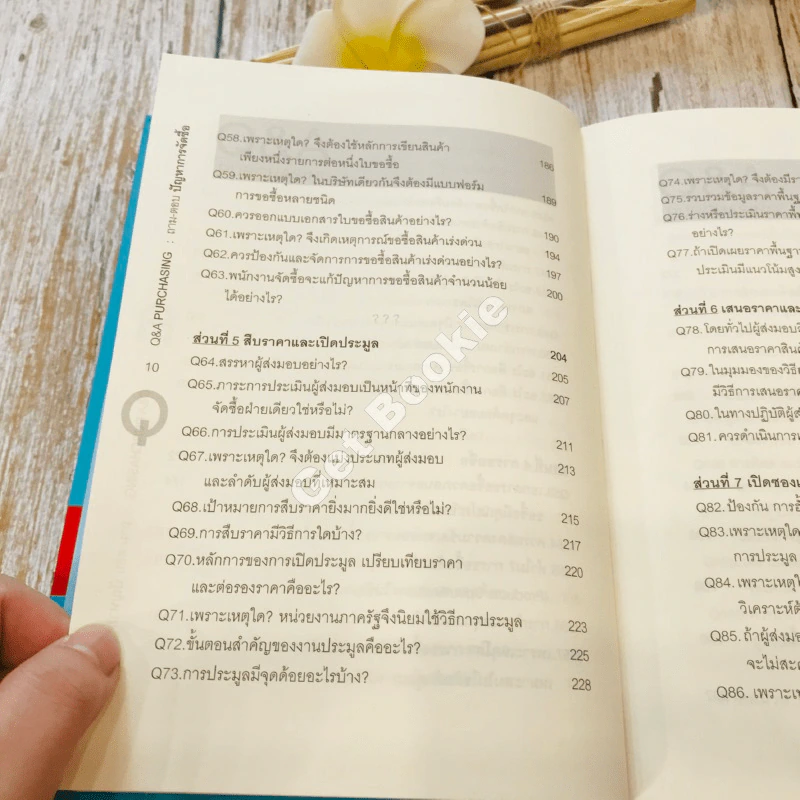 Q&A PURCHASING : ถาม-ตอบ ปัญหาการจัดซื้อ
10
Q58.เพราะเหตุใด? จึงต้องใช้หลักการเขียนสินค้า
เพียงหนึ่งรายการต่อหนึ่งใบขอซื้อ 186
Q59.เพราะเหตุใด? ในบริษัทเดียวกันจึงต้องมีแบบฟอร์ม
การขอซื้อหลายชนิด 189
Q60.ควรออกแบบเอกสารใบขอซื้อสินค้าอย่างไร? 190
Q61.เพราะเหตุใด? จึงเกิดเหตุการณ์ขอซื้อสินค้าเร่งด่วน 194
Q62.ควรป้องกันและจัดการการขอซื้อสินค้าเร่งด่วนอย่างไร? 197
Q63.พนักงานจัดซื้อจะแก้ปัญหาการขอซื้อสินค้าจำนวนน้อย 200
ได้อย่างไร?
???
ส่วนที่ 5 สืบราคาและเปิดประมูล 204
Q64.สรรหาผู้ส่งมอบอย่างไร? 205
Q65.ภาระการประเมินผู้ส่งมอบเป็นหน้าที่ของพนักงาน 207
จัดซื้อฝ่ายเดียวใช่หรือไม่?
Q66.การประเมินผู้ส่งมอบมีมาตรฐานกลางอย่างไร? 211
Q67.เพราะเหตุใด? จึงต้องแบ่งประเภทผู้ส่งมอบ 213
และลำดับผู้ส่งมอบที่เหมาะสม
Q68.เป้าหมายการสืบราคายิ่งมากยิ่งดีใช่หรือไม่? 215
Q69.การสืบราคามีวิธีการใดบ้าง? 217
Q70.หลักการของการเปิดประมูล เปรียบเทียบราคา 220
และต่อรองราคาคืออะไร?
Q71.เพราะเหตุใด? หน่วยงานภาครัฐจึงนิยมใช้วิธีการประมูล 223
Q72.ขั้นตอนสำคัญของงานประมูลคืออะไร? 225
Q73.การประมูลมีจุดด้อยอะไรบ้าง? 228
Get Bookie
Q74.เพราะเหตุใด? จึงต้องมีรา
Q75.รวบรวมข้อมูลราคาพื้นฐ
Q76.ร่างหรือประเมินราคาพื้น
อย่างไร?
Q77.ถ้าเปิดเผยราคาพื้นฐา
ประเมินมีแนวโน้มสูง
ส่วนที่ 6 เสนอราคาและ
Q78.โดยทั่วไปผู้ส่งมอบมี
การเสนอราคาสินค้
Q79.ในมุมมองของวิธี
มีวิธีการเสนอราค
Q80.ในทางปฏิบัติผู้ส่
Q81.ควรดำเนินการ
ส่วนที่ 7 เปิดซองเ
Q82.ป้องกัน การฮั้
Q83.เพราะเหตุใด
การประมูล
Q84.เพราะเหตุใ
วิเคราะห์ต้
Q85.ถ้าผู้ส่งมอ
จะไม่สะด
Q86. เพราะเห